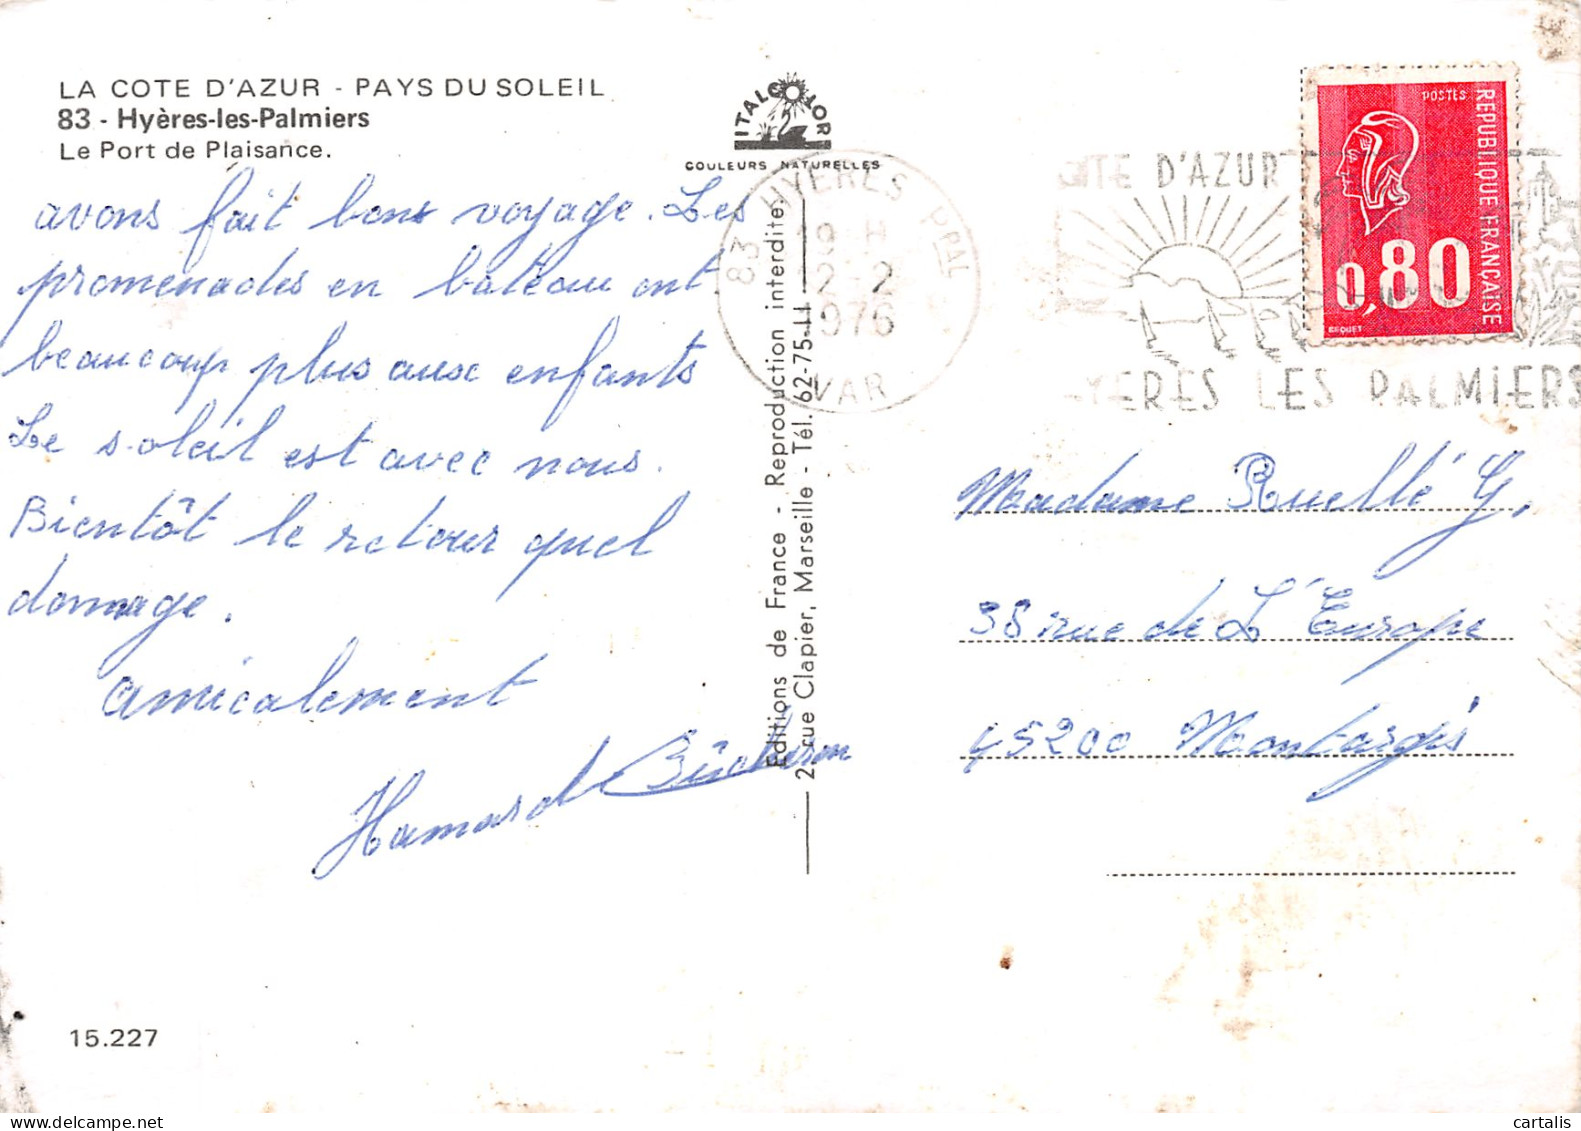 LA COTE D'AZUR - PAYS DU SOLEIL
83 - Hyères-les-Palmiers
Le Port de Plaisance.
avons fait bons voyage. Les
promenades en bateau ont
beaucoup plus aux enfants
Le soleil est avec nous.
Bientôt le retour quel
domage.
amicalement
Hamard
15.227
ITALCOLOR
COULEURS NATURELLES
Editions de France - Reproduction interdite.
2, rue Clapier, Marseille - Tél. 62-75-11
83 HYERES PPAL
19 H
12 - 2
1976
VAR
COTE D'AZUR
HYERES LES PALMIERS
POSTES
REPUBLIQUE FRANÇAISE
0,80
BEQUET
Madame Ruellé G.
38 rue de L'Europe
45200 Montargis
cartalis